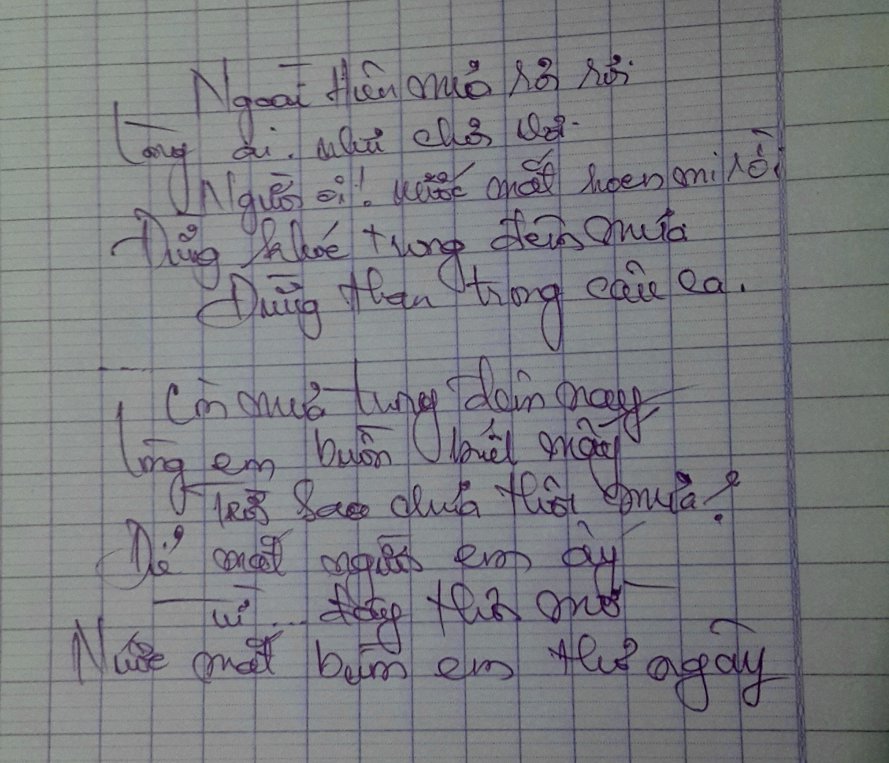 Ngoài hiên mưa rơi rơi
Lòng ai như chơi vơi
Người ơi! nước mắt hoen mi rồi
Đừng khóc trong đêm mưa
Đừng than trong câu ca.
Còn mưa trong đêm nay
Lòng em buồn biết mấy
Trời sao chưa thôi mưa?
Để mắt người em ấy
vì... đây thôi mơ
Nước mắt buồn em thơ ngây